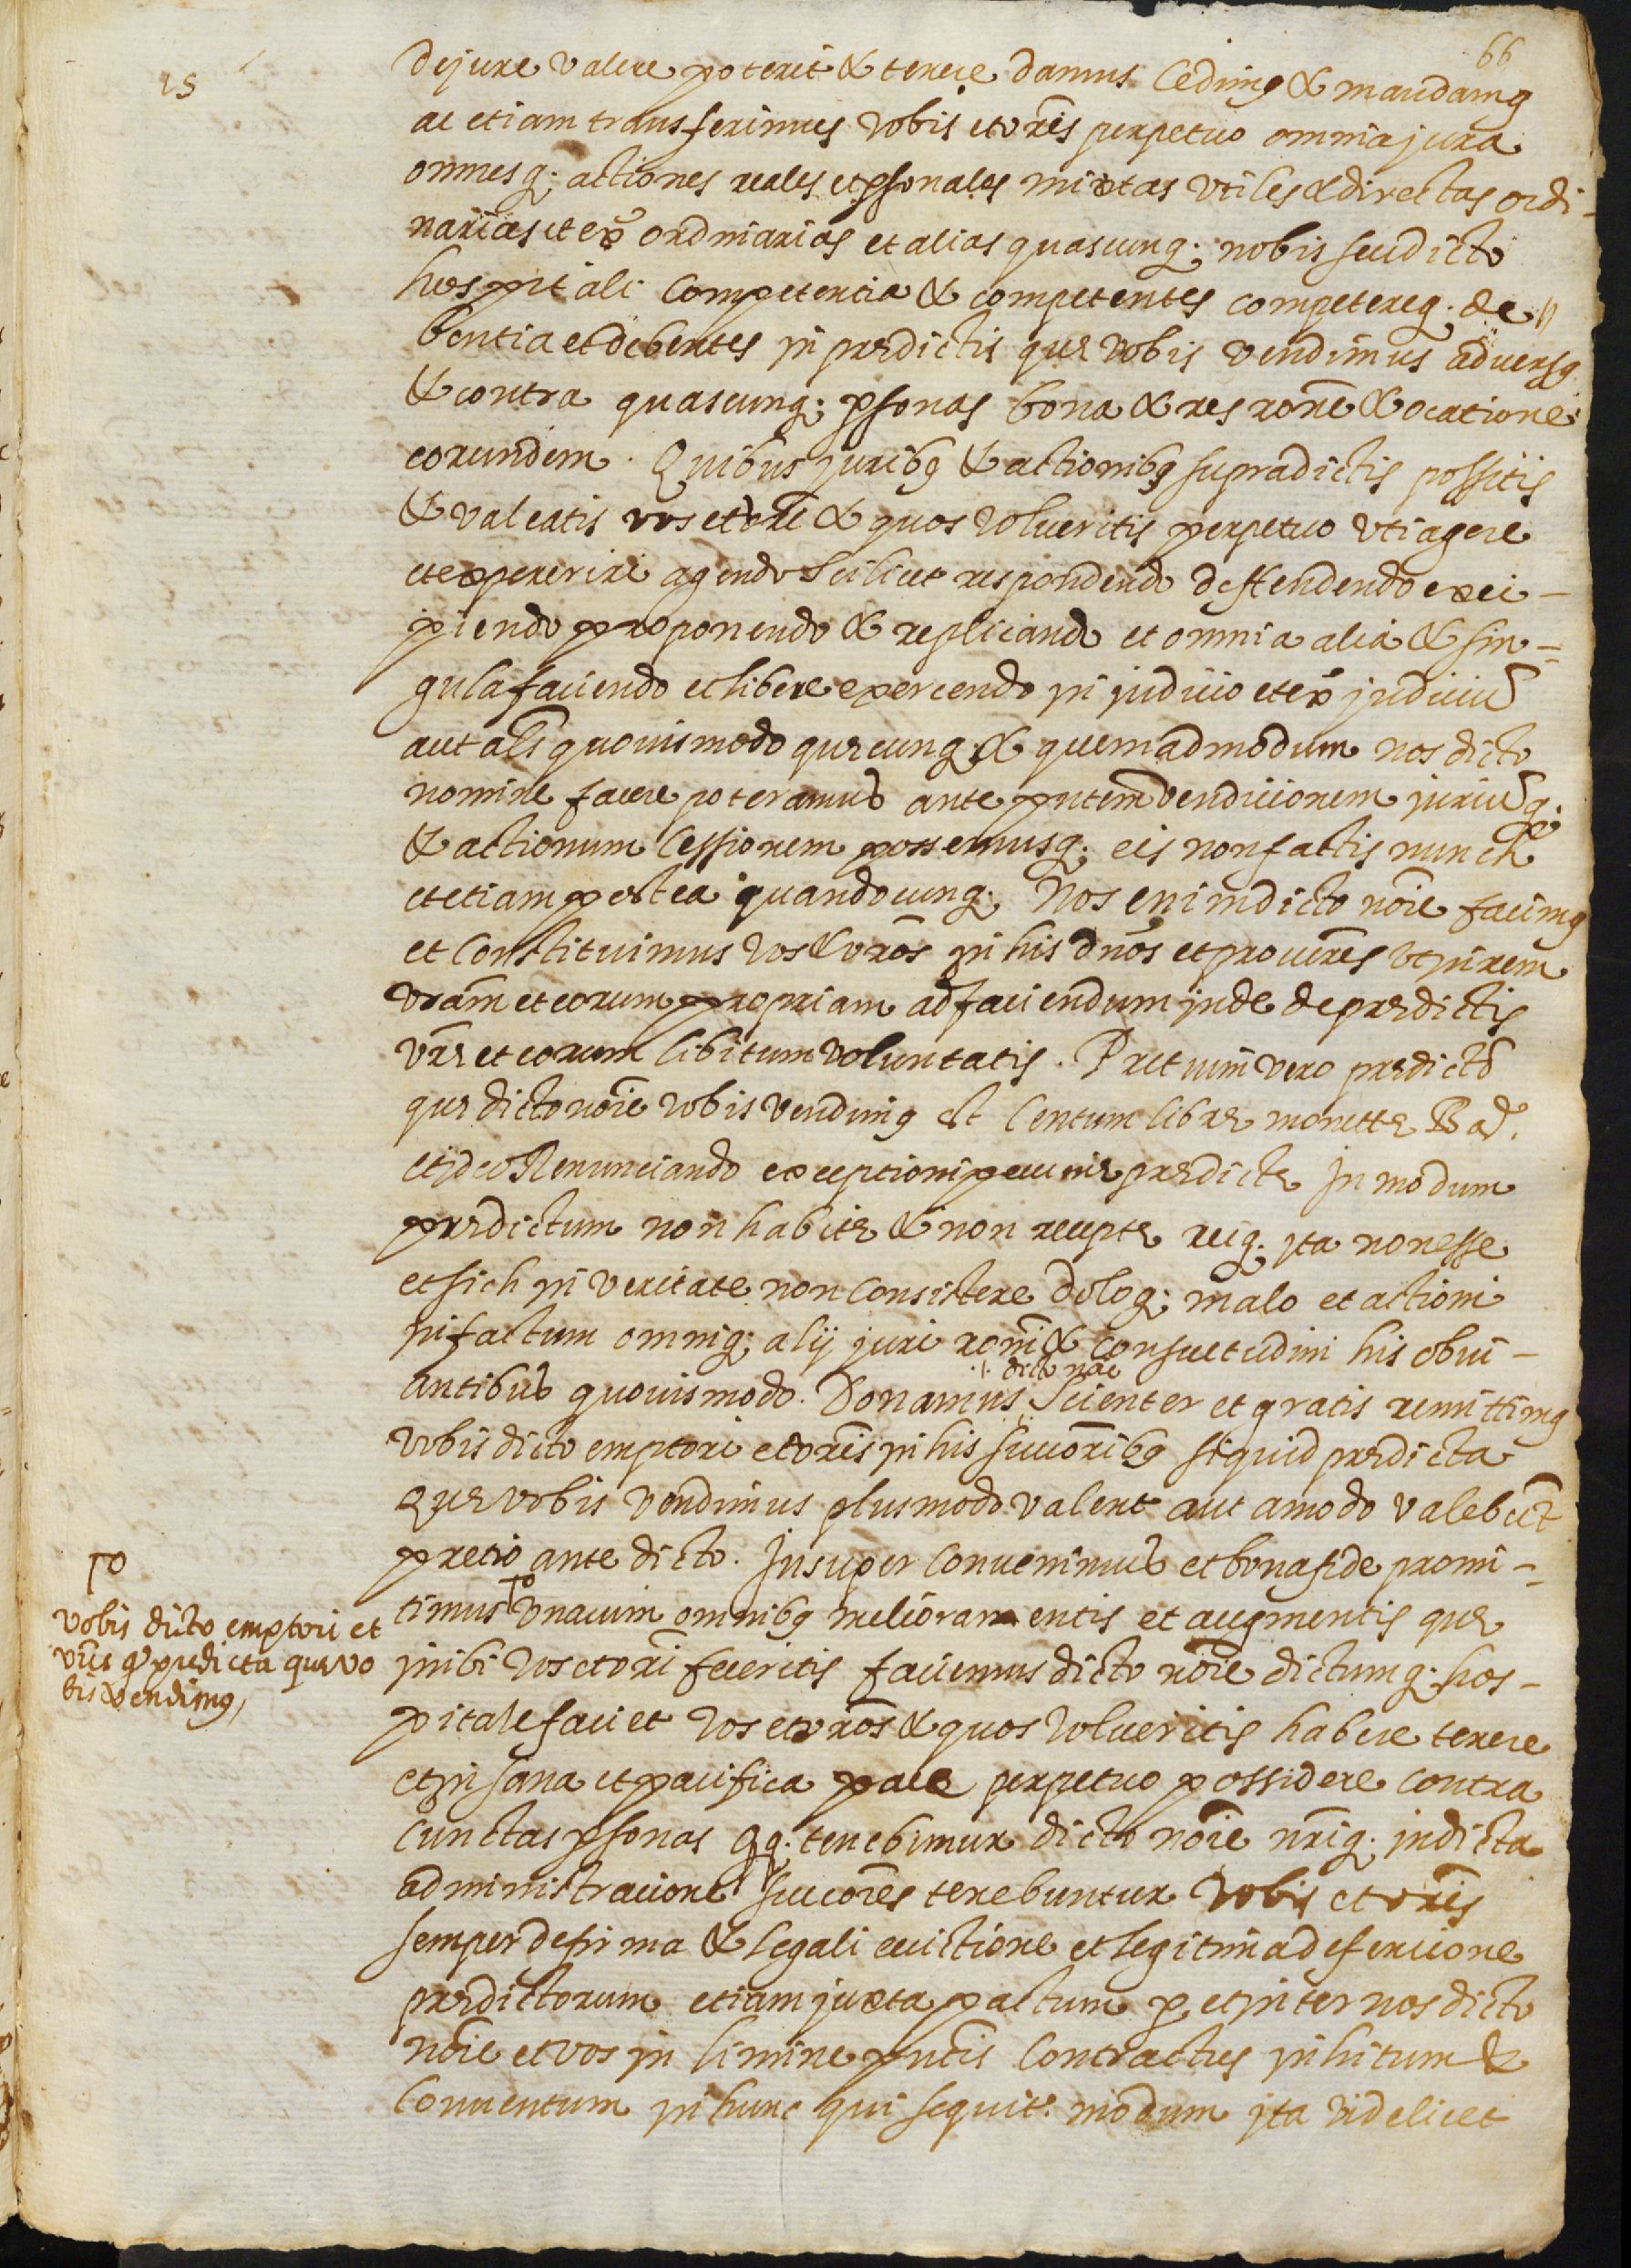 66
15
de jure valere poterit & tenere damus Cedimꝯ & mandamꝯ
ac etiam transferimus vobis et vr̃is perpetuo omnia jura
omnesq; actiones reales et ꝑsonales mixtas utiles & directas ordi-
narias et ex̃ ordinarias et alias quascunq; nobis seu dicto
hospitali Competentia & competentes competereq; de=
bentia et debentes in prædictis quæ vobis vendimus adversꝯ
& contra quascunq; ꝑsonas bona & res rõne & ocatione
eorundem. Quibus juribꝯ & actionibꝯ supradictis possitis
& valeatis vos et vr̃i & quos volueritis perpetuo uti agere
et expererire agendo scilicet respondendo deffendendo exci-
piendo proponendo & replicando et omnia alia & sin-
gula faciendo et libere exercendo in juditio et ex̃ juditiũ
aut als̃ quovismodo quæcunq; & quemadmodum nos dicto
nomine facere poteramus ante pñtem vendicionem juriũq;
& actionum Cessionem possemusq; eis non factis nunch
et etiam postea quandocunq; Nos enim dicto nõie facimꝯ
et Constituimus vos & vr̃os in his dños et procures ut in rem
vr̃am et eorum propriam ad faciendum inde de prædictis
vr̃æ et eorum libitum voluntatis. Pretium vero prædictõ
quæ dicto nõie vobis vendimꝯ est Centum libræ monettæ Bar̃.
et ideo Renunciando exceptioni pecuniæ prædictæ In modum
prædictum non habitæ & non receptæ reiq; ita non esse
et sich in veritate non Consistere doloq; malo et actioni
in factum omniq; alij juri rõni & Consuetudini his obvi-
./. dicto nõie
antibus quovismodo. Donamus Scienter et gratis remittimꝯ
vobis dicto emptori et vr̃is in his succõribꝯ siquid prædicta
quæ vobis vendimus plusmodo valent aut amodo valebũt
pretio ante dicto. Insuper Convenimus et bona fide promi-
timus ſo una cum omnibꝯ mellioramentis et augmentis quæ
inibi vos et vr̃i feceritis faciemus dicto nõie dictumq; hos-
pitale faciet vos et vr̃os & quos volueritis habere tenere
et in sana et pacifica pace perpetuo possidere Contra
Cunctas ꝑsonas Qq; tenebimur dicto nõie nr̃iq; in dicta
administracione succõres tenebuntur vobis et vr̃is
semper de firma & legali evictione et legitima defencione
prædictorum etiam juxta pactum ꝑ et inter nos dicto
nõie et vos in limine pñtis Contractus inhitum &
Conventum in hunc qui sequit̃ modum ita videlicet
ſo
vobis dicto emptori et
vr̃is qđ predicta quæ vo
bis vendimꝯ,